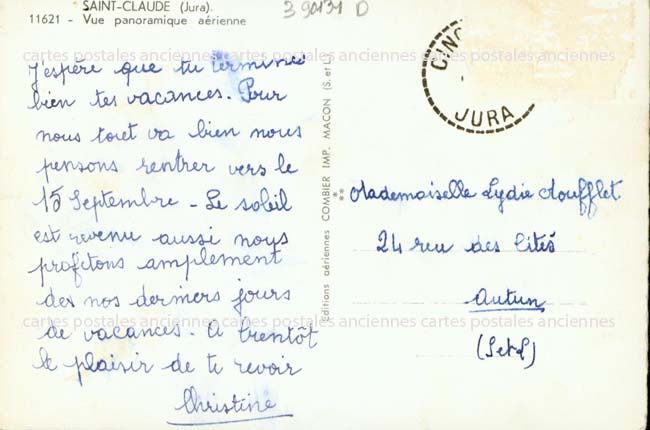 SAINT-CLAUDE (Jura).
11621 - Vue panoramique aérienne
3 90131 D
J'espère que tu termines
bien tes vacances. Pour
nous tout va bien nous
pensons rentrer vers le
15 Septembre - Le soleil
est revenu aussi nous
profitons amplement
des nos derniers jours
de vacances. A bientôt
le plaisir de te revoir
Christine
Editions aériennes COMBIER IMP. MACON (S. et L.)
CINQ
JURA
Mademoiselle Lydie Moufflet
24 rue des Cités
Autun
(S et L)
cartes postales anciennes cartes postales anciennes cartes postales anciennes
cartes postales anciennes cartes postales anciennes cartes postales anciennes